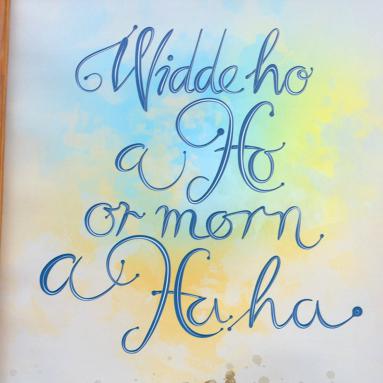 Widde ho
a Ho
or morn
a Ha.ha.